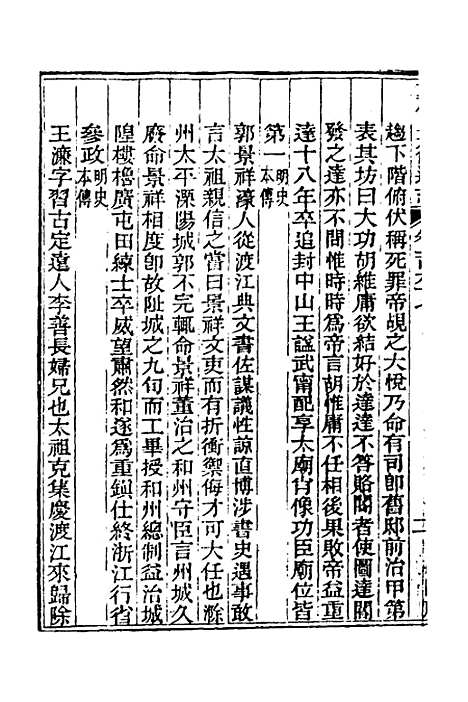 趨下階俯伏稱死罪帝覘之大悅乃命有司卽舊邸前治甲第
表其坊曰大功胡維庸欲結好於達達不答賂閽者使圖達閽
發之達亦不問惟時時爲帝言胡惟庸不任相後果敗帝益重
達十八年卒追封中山王諡武甯配享太廟肖像功臣廟位皆
第一明史本傳
郭景祥濠人從渡江典文書佐謀議性諒直博涉書史遇事敢
言太祖親信之嘗曰景祥文吏而有折衝禦侮才可大任也滁
州太平溧陽城郭不完輒命景祥董治之和州守臣言州城久
廢命景祥相度卽故址城之九旬而工畢授和州總制益治城
隍樓櫓廣屯田練士卒威望肅然和遂爲重鎭仕終浙江行省
參政明史本傳
王濂字習古定遠人李善長婦兄也太祖克集慶渡江來歸除